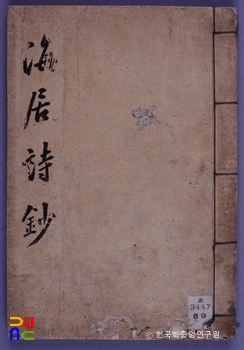 海居詩鈔
古
3447
89
ⓒ 한국학중앙연구원